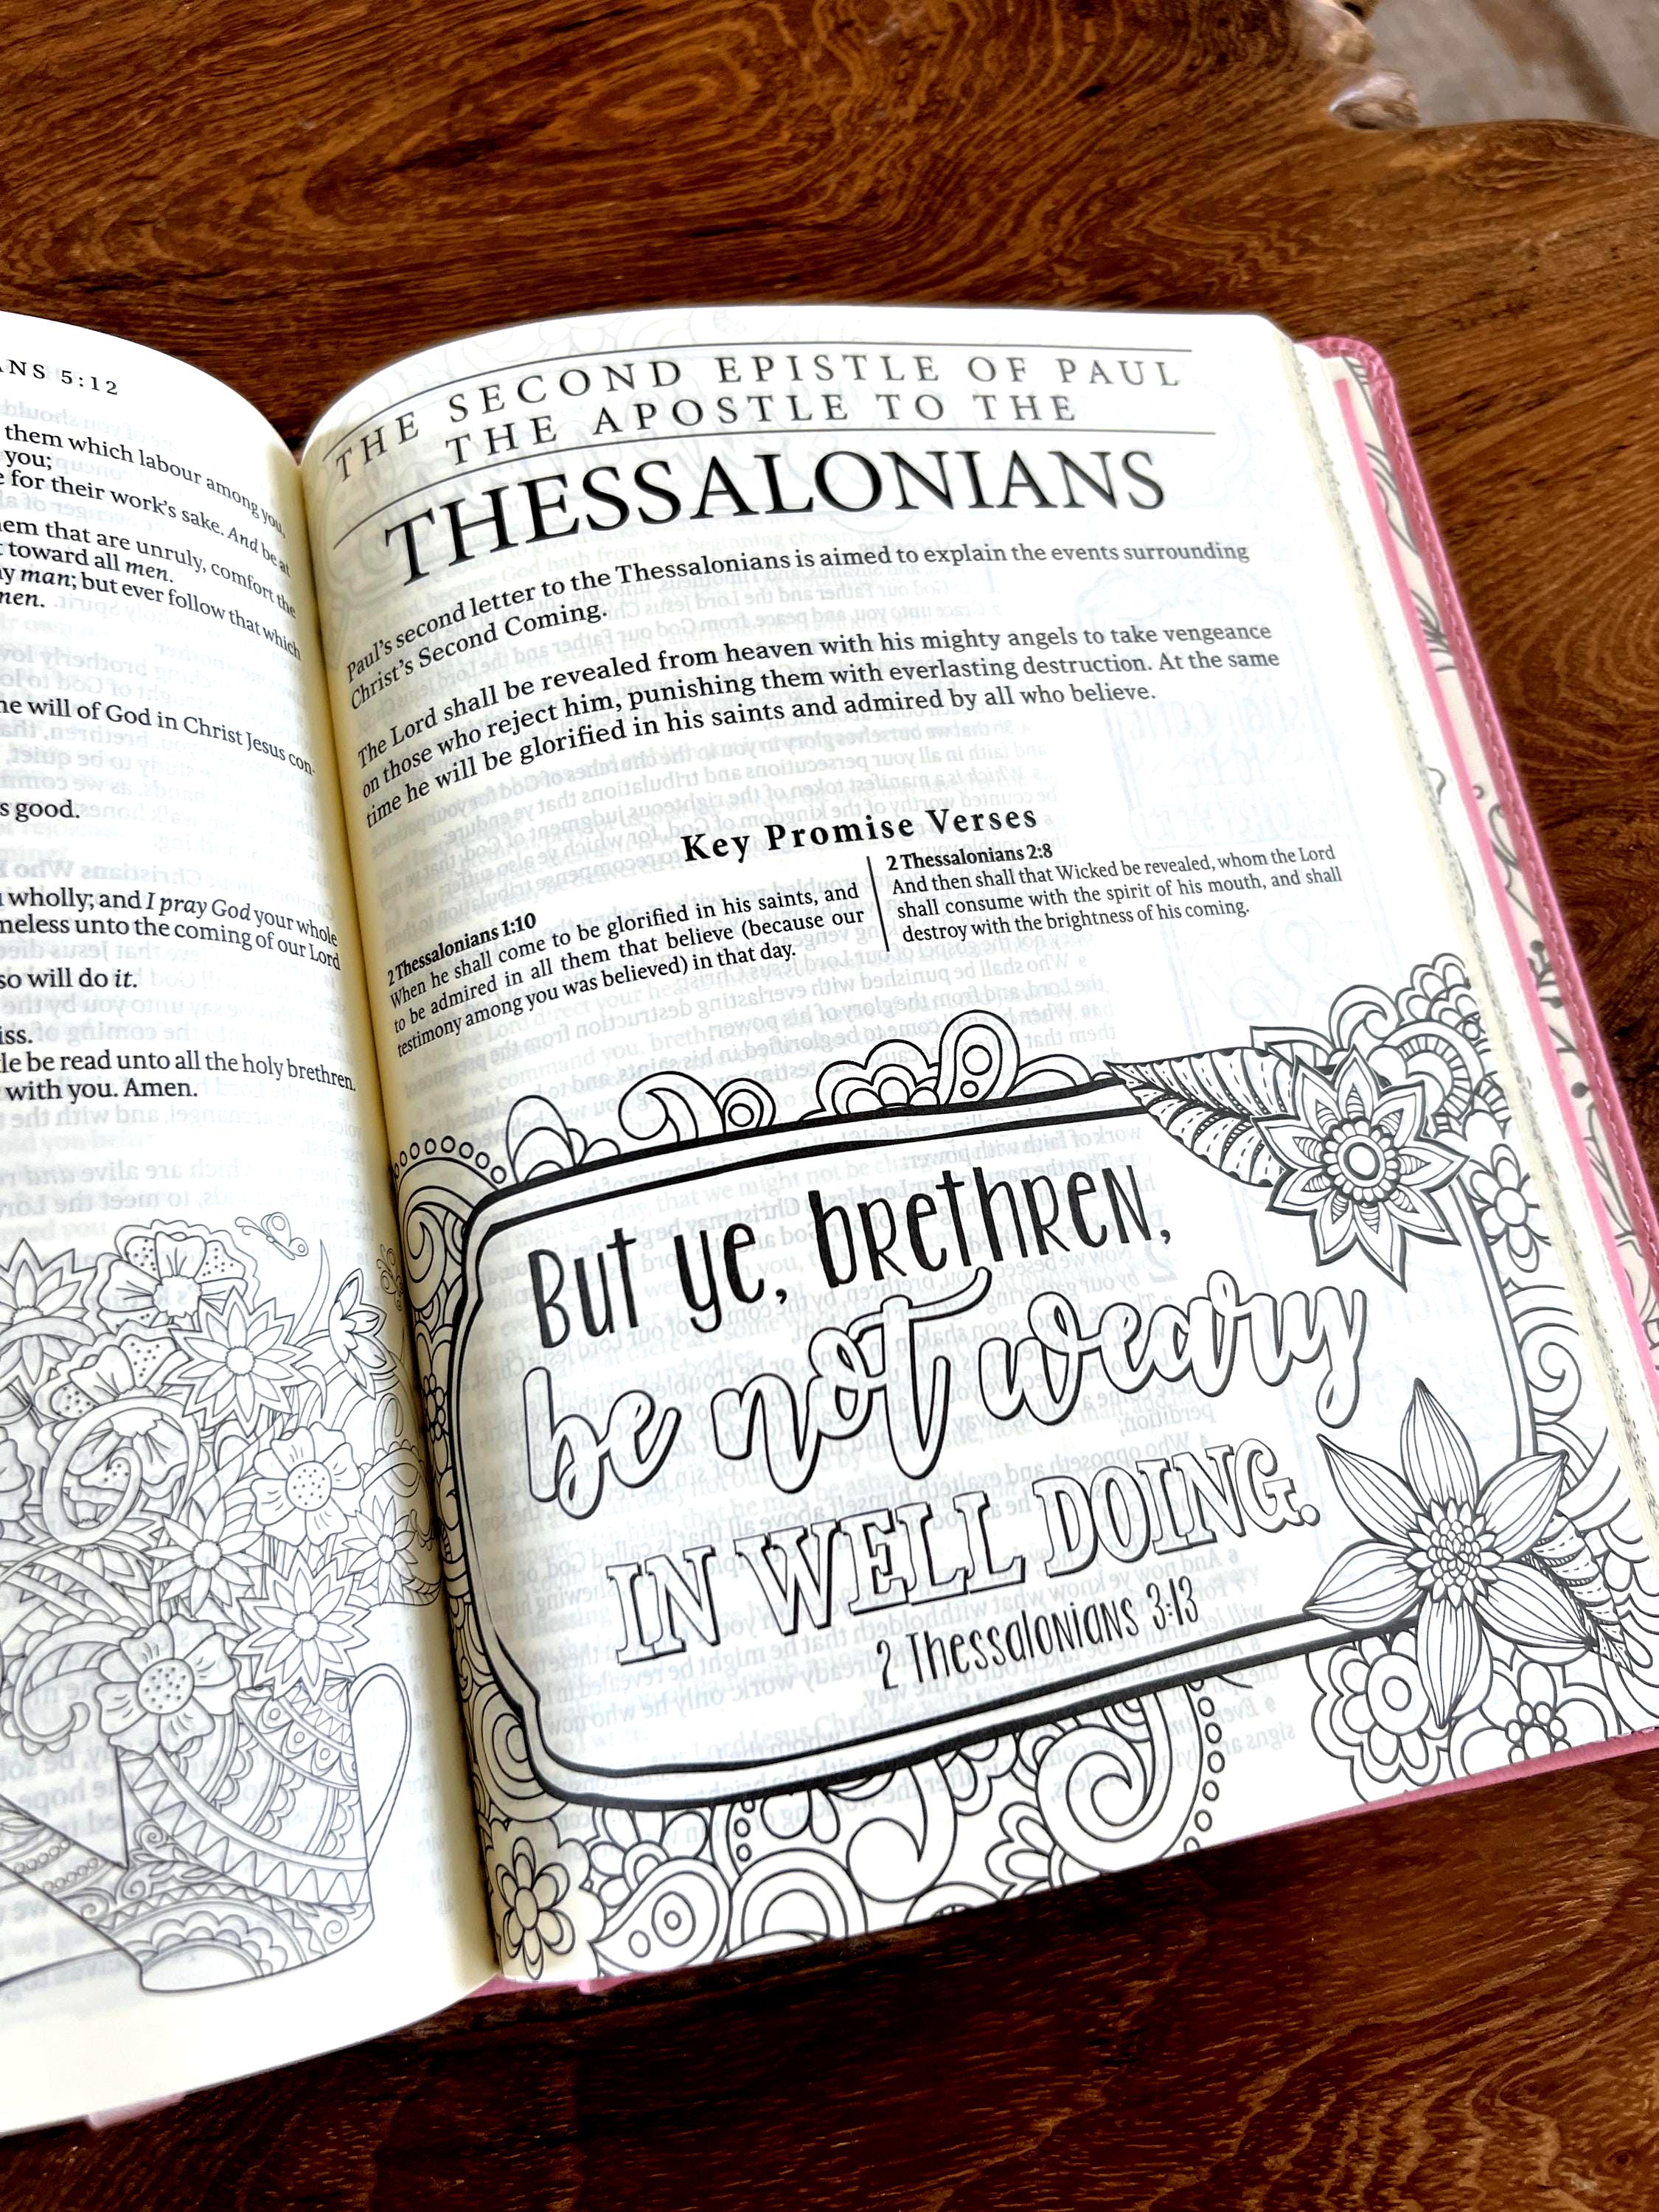 ANS 5:12
them which labour among you,
you;
for their work's sake. And be at
em that are unruly, comfort the
toward all men.
y man; but ever follow that which
men.
he will of God in Christ Jesus con-
s good.
wholly; and I pray God your whole
neless unto the coming of our Lord
so will do it.
iss.
le be read unto all the holy brethren.
with you. Amen.
THE SECOND EPISTLE OF PAUL
THE APOSTLE TO THE
THESSALONIANS
Paul's second letter to the Thessalonians is aimed to explain the events surrounding
Christ's Second Coming.
The Lord shall be revealed from heaven with his mighty angels to take vengeance
on those who reject him, punishing them with everlasting destruction. At the same
time he will be glorified in his saints and admired by all who believe.
Key Promise Verses
2 Thessalonians 1:10
When he shall come to be glorified in his saints, and
to be admired in all them that believe (because our
testimony among you was believed) in that day.
2 Thessalonians 2:8
And then shall that Wicked be revealed, whom the Lord
shall consume with the spirit of his mouth, and shall
destroy with the brightness of his coming.
But ye, brethren,
be not weary
IN WELL DOING.
2 Thessalonians 3:13